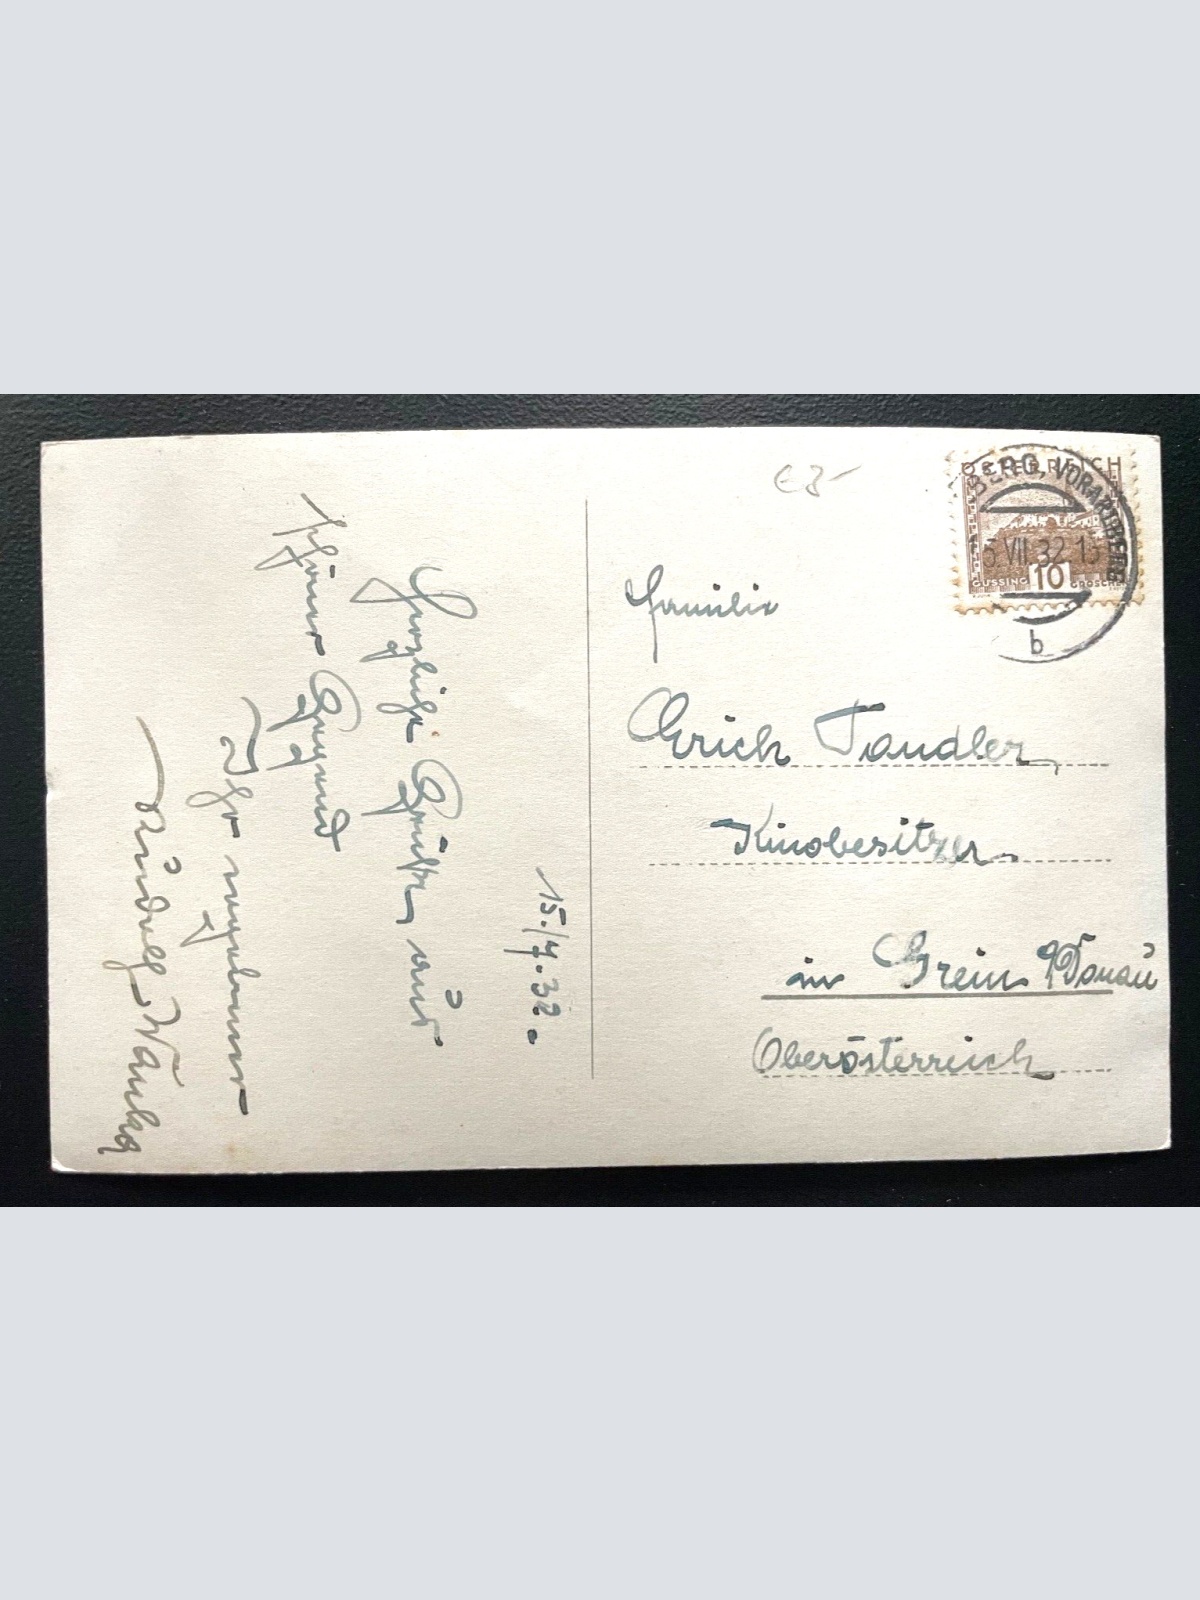 € 3-
OSTERREICH
BERG, VORARLBERG
VII 32 13
GUSSING 10 GROSCHEN
b
Familie
Erich Tandler,
Kinobesitzer
in Grein a/Donau
Oberösterreich
15./7.32.
Herzliche Grüße aus
schöner Gegend
Ihr ergebener